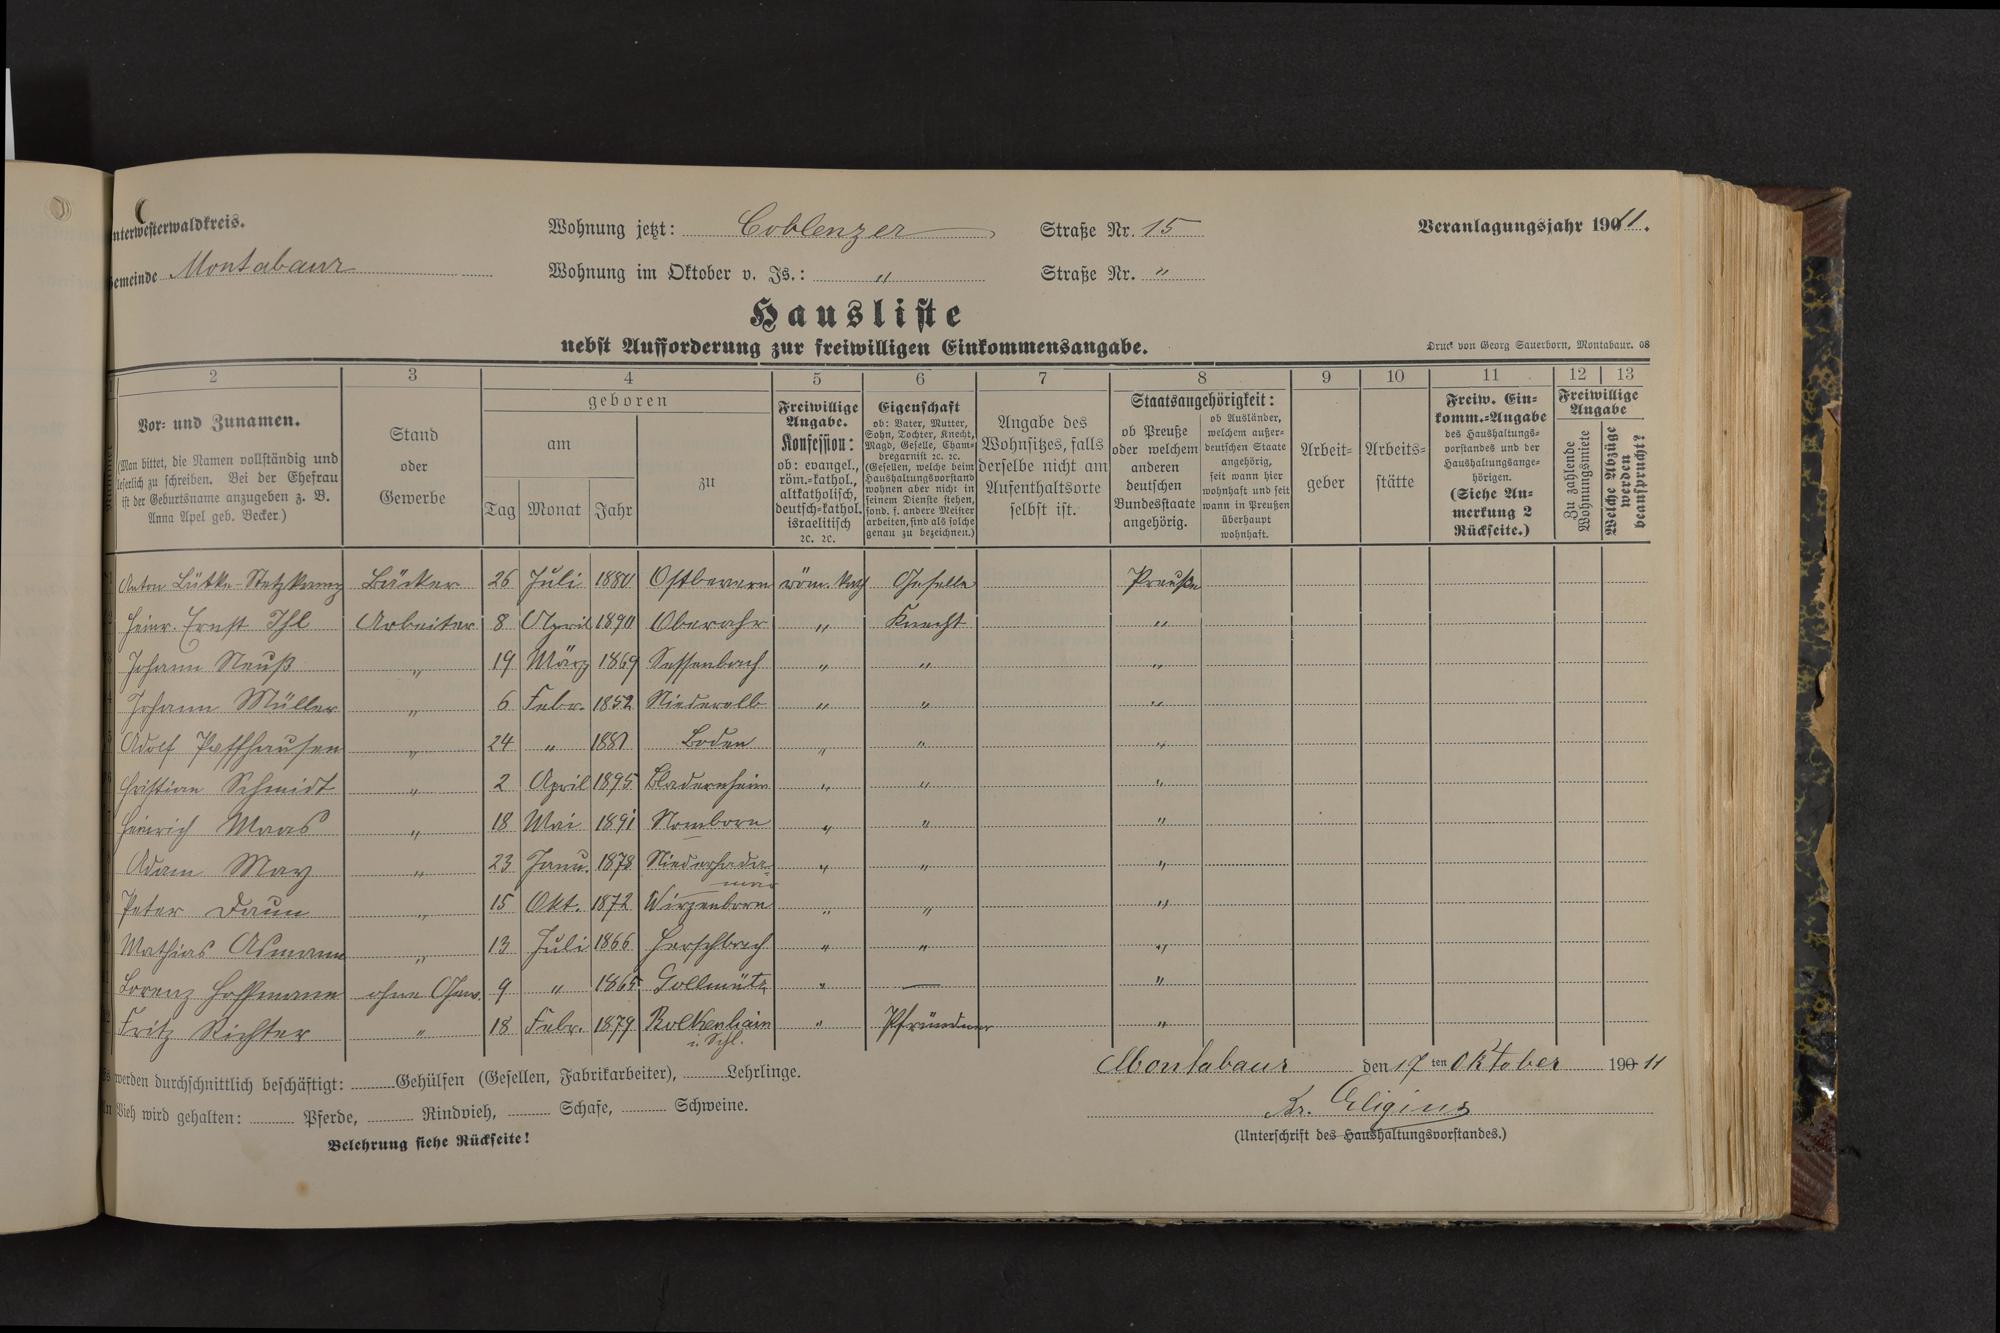 Unterwesterwaldkreis.
Gemeinde Montabaur
Wohnung jetzt: Coblenzer Straße Nr. 15
Wohnung im Oktober v. Js.: " Straße Nr. "
Veranlagungsjahr 1911.
Hausliste
nebst Aufforderung zur freiwilligen Einkommensangabe.
Druck von Georg Sauerborn, Montabaur. 08
2 3 4 5 6 7 8 9 10 11 12 13
Vor- und Zunamen.
(Man bittet, die Namen vollständig und
leserlich zu schreiben. Bei der Ehefrau
ist der Geburtsname anzugeben z. B.
Anna Apel geb. Becker)
Stand
oder
Gewerbe
geboren
am
Tag Monat Jahr
zu
Freiwillige
Angabe.
Konfession:
ob: evangel.,
röm.-kathol.,
altkatholisch,
deutsch-kathol.
israelitisch
ꝛc. ꝛc.
Eigenschaft
ob: Vater, Mutter,
Sohn, Tochter, Knecht,
Magd, Geselle, Cham-
bregarnist ꝛc. ꝛc.
(Gesellen, welche beim
Haushaltungsvorstand
wohnen aber nicht in
seinem Dienste stehen,
sond. f. andere Meister
arbeiten, sind als solche
genau zu bezeichnen.)
Angabe des
Wohnsitzes, falls
derselbe nicht am
Aufenthaltsorte
selbst ist.
Staatsangehörigkeit:
ob Preuße
oder welchem
anderen
deutschen
Bundesstaate
angehörig.
ob Ausländer,
welchem außer-
deutschen Staate
angehörig,
seit wann hier
wohnhaft und seit
wann in Preußen
überhaupt
wohnhaft.
Arbeit-
geber
Arbeits-
stätte
Freiw. Ein-
komm.-Angabe
des Haushaltungs-
vorstandes und der
Haushaltungsange-
hörigen.
(Siehe An-
merkung 2
Rückseite.)
Freiwillige
Angabe
Zu zahlende
Wohnungsmiete
Welche Abzüge
werden
beansprucht?
Anton Lütke-Stetzkamp Bäcker 26 Juli 1880 Ostbevern röm. kath Geselle Preuße
Heinr. Ernst Ihl Arbeiter 8 April 1890 Oberahr " Knecht "
Johann Neuß " 19 März 1869 Sessenbach " " "
Johann Müller " 6 Febr. 1852 Niederelb " " "
Adolf Paffhausen " 24 " 1881 Boden " " "
Christian Schmidt " 2 April 1895 Bladernheim " " "
Heinrich Maas " 18 Mai 1891 Nomborn " " "
Adam May " 23 Janu. 1878 Niederhada-
mar " " "
Peter Daun " 15 Okt. 1872 Wirzenborn " " "
Mathias Asmann " 13 Juli 1866 Herschbach " " "
Lorenz Hoffmann ohne Gew. 9 " 1865 Gollmütz " — "
Fritz Richter " 18 Febr. 1879 Bolkenhain
i. Schl. " Pfründner "
Es werden durchschnittlich beschäftigt: Gehülfen (Gesellen, Fabrikarbeiter), Lehrlinge.
An Vieh wird gehalten: Pferde, Rindvieh, Schafe, Schweine.
Belehrung siehe Rückseite!
Montabaur den 17ten Oktober 1911
Br. Eligius
(Unterschrift des Haushaltungsvorstandes.)